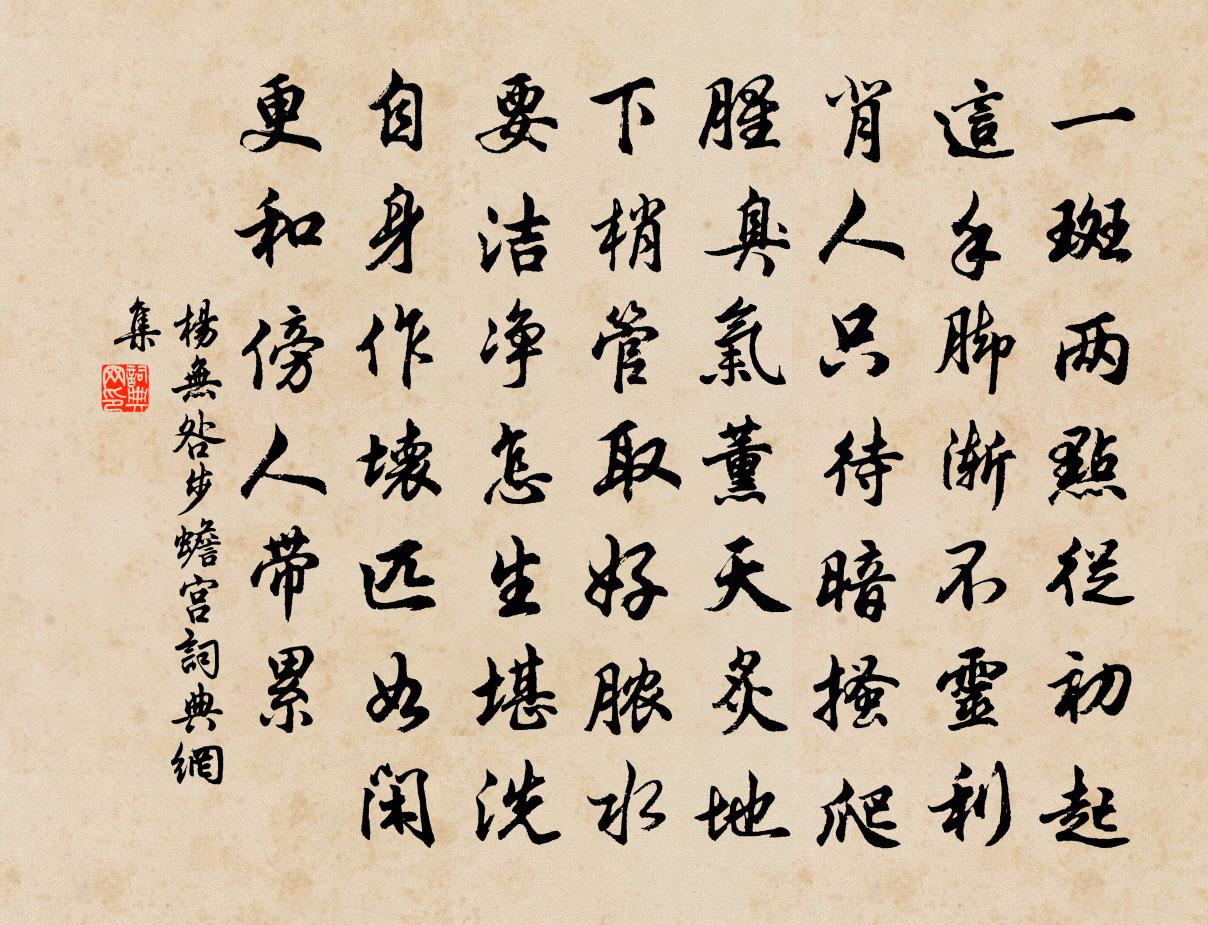 一斑两點從初起
這手脚漸不靈利
背人只待暗搔爬
腥臭氣薰天炙地
下梢管取好脓水
要洁净怎生堪洗
自身作壞匹如闲
更和傍人带累
楊無咎步蟾宫詞典網
集
詞典网印